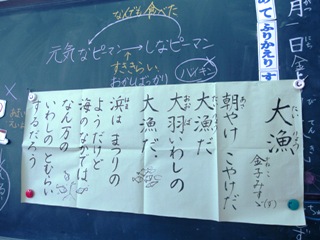 なんでも食べた
元気なピーマン→しなピーマン
すききらい
わがしばっかり
バイキン
めて
ふりかえり
す
月一日金
大漁
たいりょう
金子みすゞ
朝やけ こやけだ
大漁だ
大羽いわしの
大漁だ。
浜は まつりの
ようだけど
海のなかでは
なん万の
いわしの とむらい
するだろう